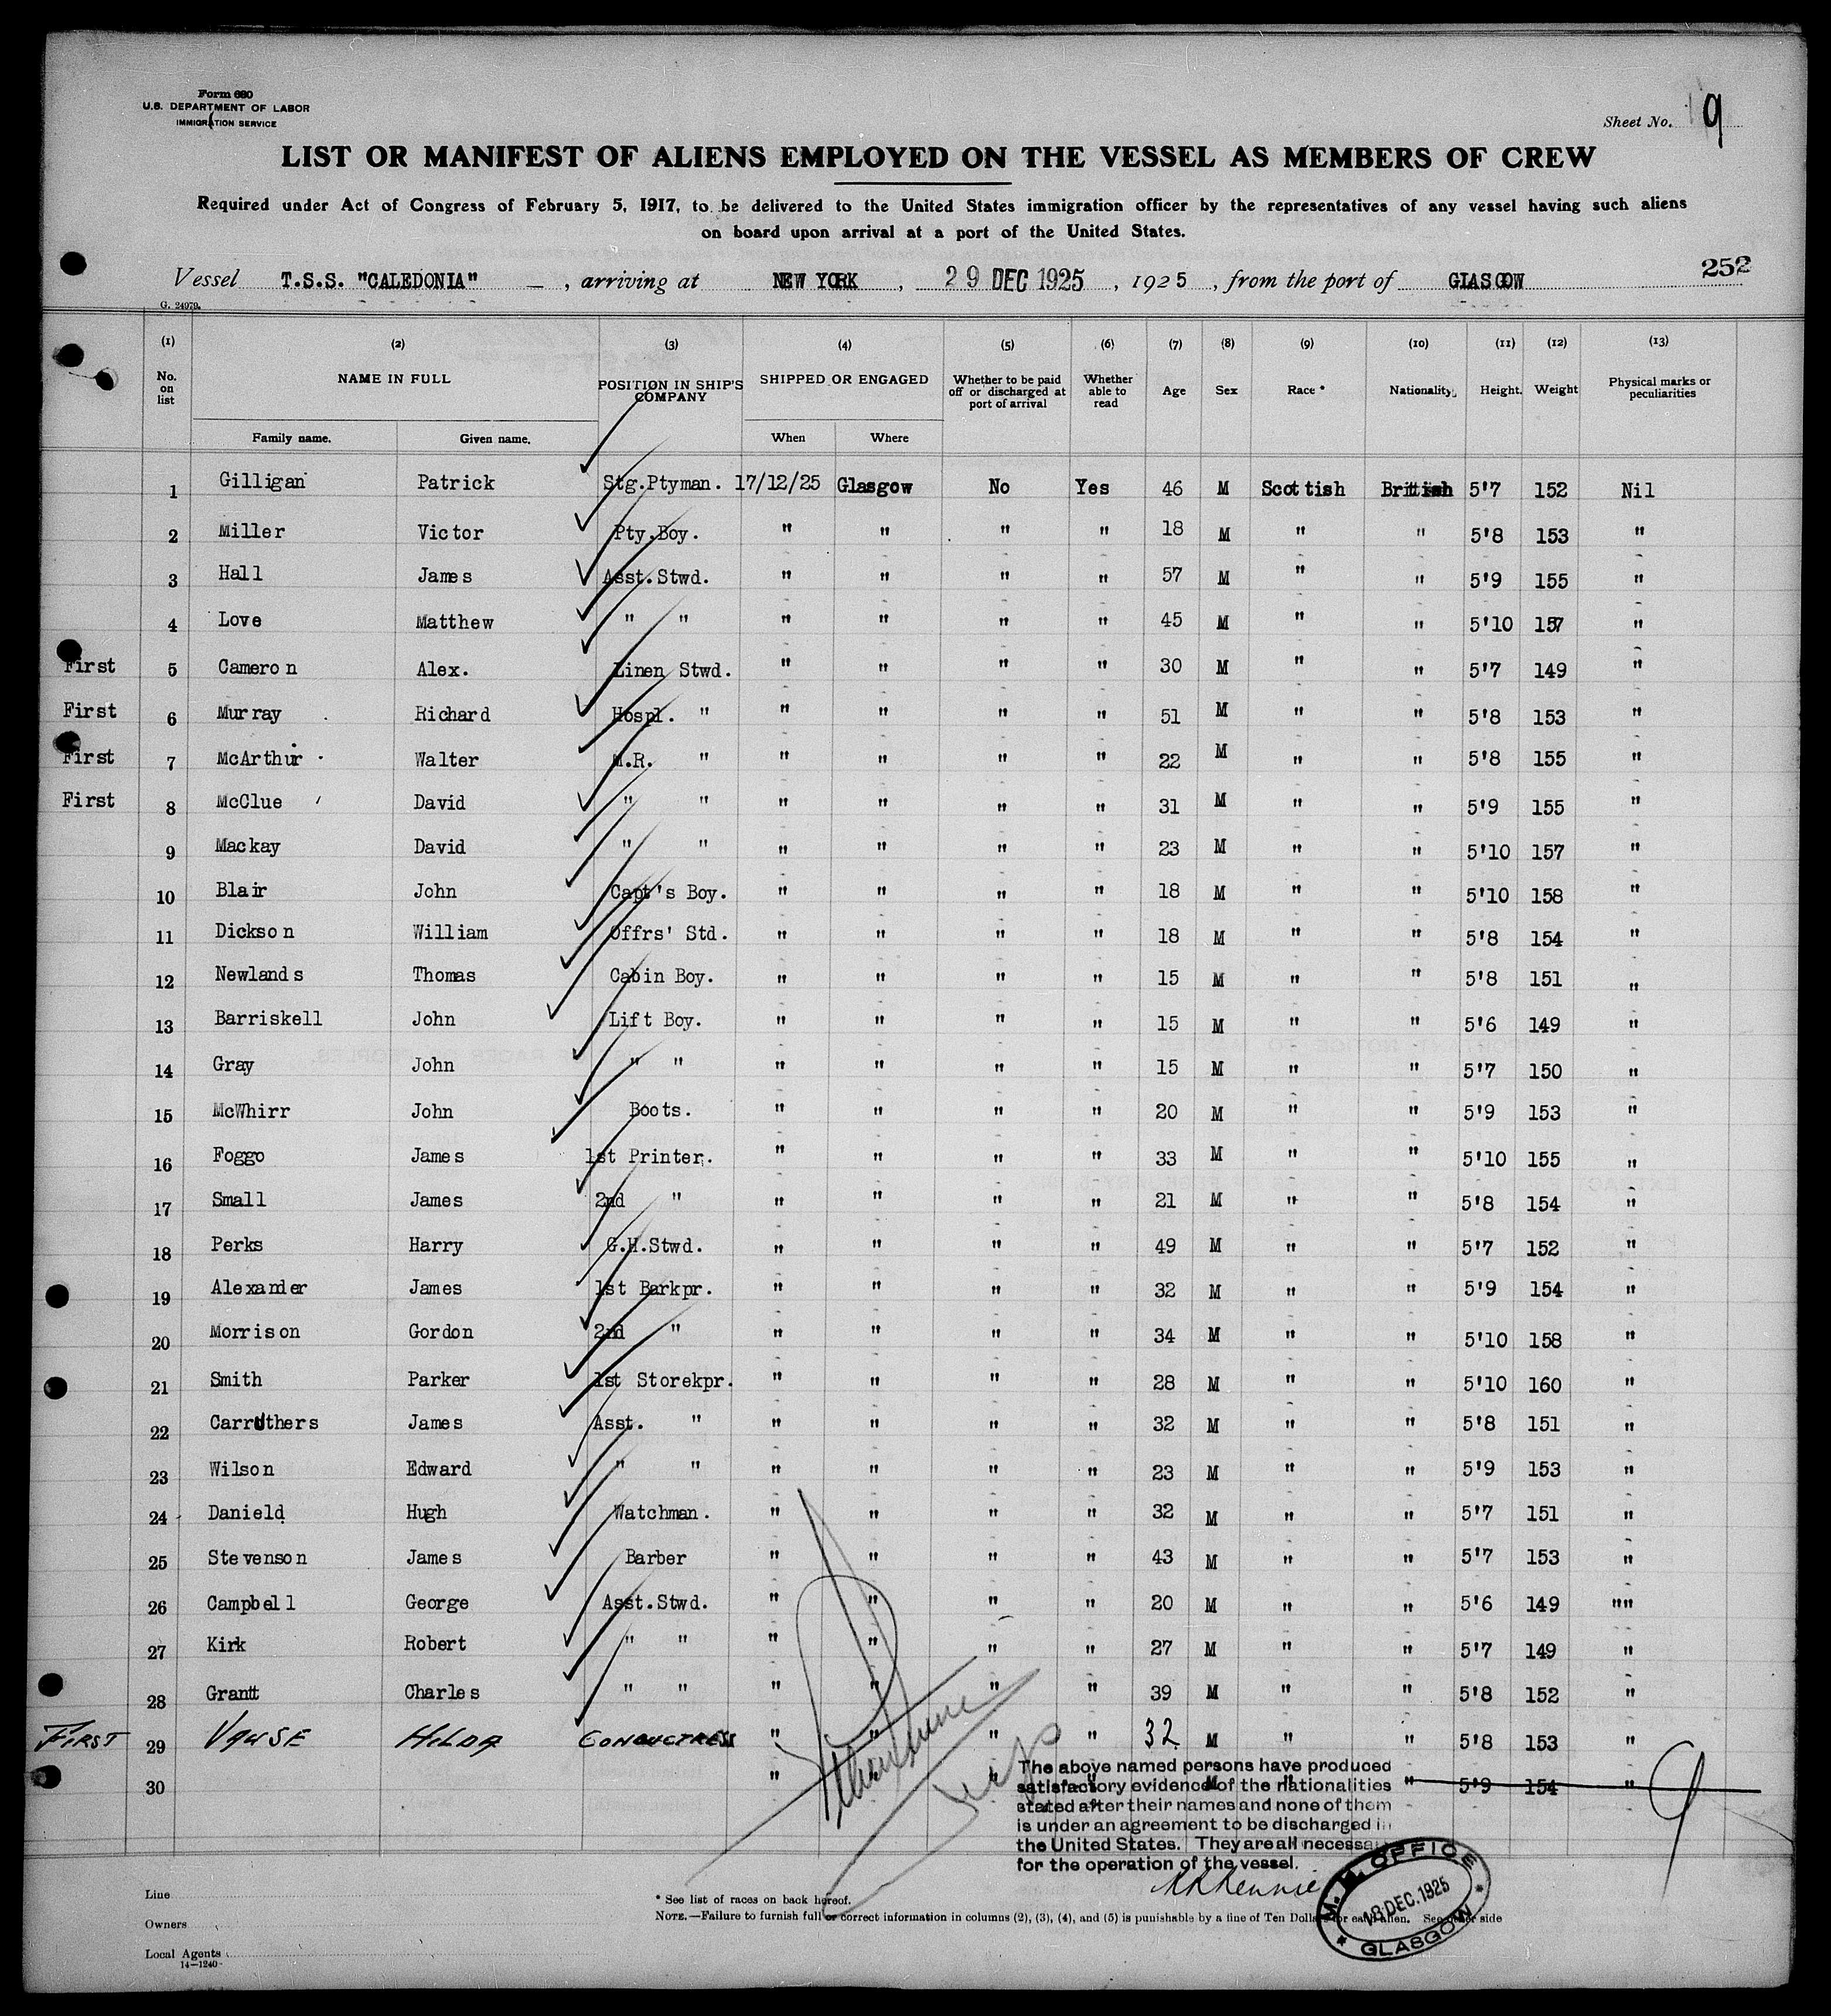 Form 680
U.S. DEPARTMENT OF LABOR
IMMIGRATION SERVICE
Sheet No. 9
LIST OR MANIFEST OF ALIENS EMPLOYED ON THE VESSEL AS MEMBERS OF CREW
Required under Act of Congress of February 5, 1917, to be delivered to the United States immigration officer by the representatives of any vessel having such aliens
on board upon arrival at a port of the United States.
252
Vessel T.S.S. "CALEDONIA" , arriving at NEW YORK , 29 DEC 1925 , 1925 , from the port of GLASGOW
G. 24979.
(1) (2) (3) (4) (5) (6) (7) (8) (9) (10) (11) (12) (13)
No. on list NAME IN FULL POSITION IN SHIP'S COMPANY SHIPPED OR ENGAGED Whether to be paid off or discharged at port of arrival Whether able to read Age Sex Race * Nationality. Height. Weight Physical marks or peculiarities
Family name. Given name. When Where
1 Gilligan Patrick Stg.Ptyman. 17/12/25 Glasgow No Yes 46 M Scottish British 5'7 152 Nil
2 Miller Victor Pty.Boy. " " " " 18 M " " 5'8 153 "
3 Hall James Asst.Stwd. " " " " 57 M " " 5'9 155 "
4 Love Matthew " " " " " " 45 M " " 5'10 157 "
First 5 Cameron Alex. Linen Stwd. " " " " 30 M " " 5'7 149 "
First 6 Murray Richard Hospl. " " " " " 51 M " " 5'8 153 "
First 7 McArthur Walter M.R. " " " " " 22 M " " 5'8 155 "
First 8 McClue David " " " " " " 31 M " " 5'9 155 "
9 Mackay David " " " " " " 23 M " " 5'10 157 "
10 Blair John Capt's Boy. " " " " 18 M " " 5'10 158 "
11 Dickson William Offrs' Std. " " " " 18 M " " 5'8 154 "
12 Newlands Thomas Cabin Boy. " " " " 15 M " " 5'8 151 "
13 Barriskell John Lift Boy. " " " " 15 M " " 5'6 149 "
14 Gray John " " " " " " 15 M " " 5'7 150 "
15 McWhirr John Boots. " " " " 20 M " " 5'9 153 "
16 Foggo James 1st Printer. " " " " 33 M " " 5'10 155 "
17 Small James 2nd " " " " " 21 M " " 5'8 154 "
18 Perks Harry G.H.Stwd. " " " " 49 M " " 5'7 152 "
19 Alexander James 1st Barkpr. " " " " 32 M " " 5'9 154 "
20 Morrison Gordon 2nd " " " " " 34 M " " 5'10 158 "
21 Smith Parker 1st Storekpr. " " " " 28 M " " 5'10 160 "
22 Carruthers James Asst. " " " " " 32 M " " 5'8 151 "
23 Wilson Edward " " " " " " 23 M " " 5'9 153 "
24 Danield Hugh Watchman. " " " " 32 M " " 5'7 151 "
25 Stevenson James Barber " " " " 43 M " " 5'7 153 "
26 Campbell George Asst.Stwd. " " " " 20 M " " 5'6 149 ""
27 Kirk Robert " " " " " " 27 M " " 5'7 149 "
28 Grantt Charles " " " " " " 39 M " " 5'8 152 "
FIRST 29 VAUSE HILDA CONDUCTRESS " " " " 32 M " " 5'8 153 "
30 " " " " M " " 5'9 154 "
The above named persons have produced
satisfactory evidence of the nationalities
stated after their names and none of them
is under an agreement to be discharged in
the United States. They are all necessary
for the operation of the vessel.
9
M. M. OFFICE
18 DEC. 1925
* GLASGOW *
Line
Owners
Local Agents
14—1240
* See list of races on back hereof.
NOTE.—Failure to furnish full or correct information in columns (2), (3), (4), and (5) is punishable by a fine of Ten Dollars for each alien. See other side